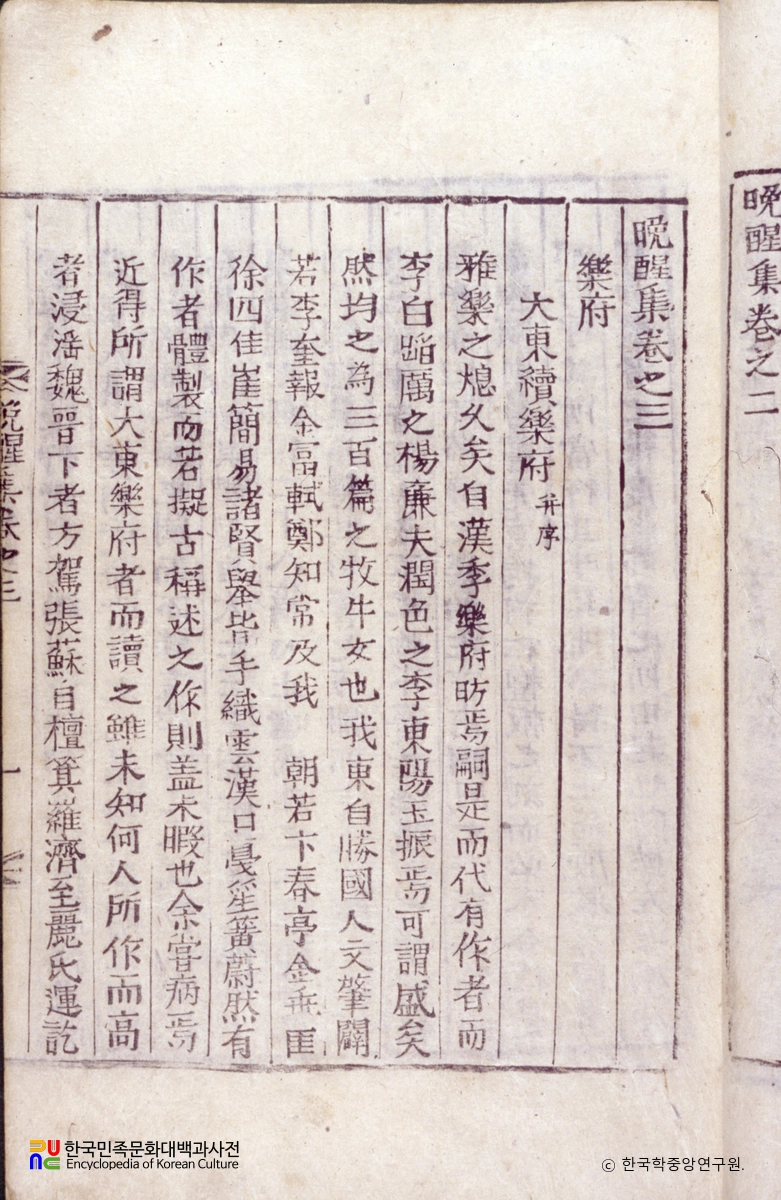 晩醒集卷之二
晩醒集卷之三
樂府
大東續樂府 并序
雅樂之熄久矣自漢季樂府昉焉嗣是而代有作者而
李白蹈厲之楊廉夫潤色之李東陽玉振焉可謂盛矣
然均之為三百篇之牧牛女也我東自勝國人文肇闢
若李奎報金富軾鄭知常及我 朝若卞春亭金乖匡
徐四佳崔簡易諸賢舉皆手織雲漢口戞笙簧蔚然有
作者體製而若擬古稱述之作則盖未暇也余嘗病焉
近得所謂大東樂府者而讀之雖未知何人所作而高
者浸滛魏晉下者方駕張蘇自檀箕羅濟至麗氏運訖
晩醒集卷之三
一
한국민족문화대백과사전
Encyclopedia of Korean Culture
ⓒ 한국학중앙연구원.